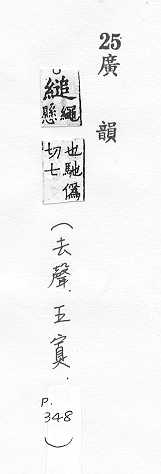 25 廣韻
○縋繩懸也馳僞切七(去聲.五寘.P.348)